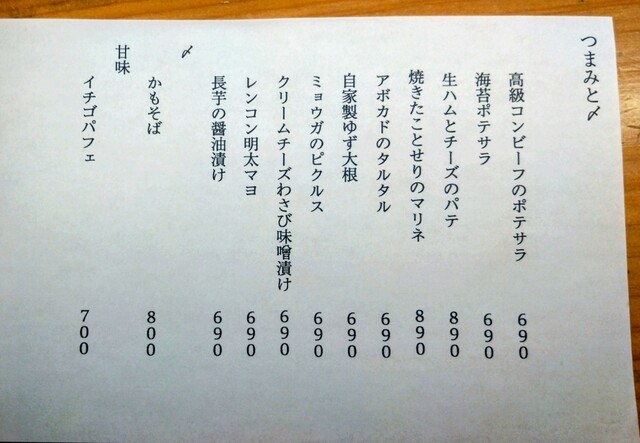 つまみと〆
高級コンビーフのポテサラ 690
海苔ポテサラ 690
生ハムとチーズのパテ 890
焼きたことせりのマリネ 890
アボカドのタルタル 690
自家製ゆず大根 690
ミョウガのピクルス 690
クリームチーズわさび味噌漬け 690
レンコン明太マヨ 690
長芋の醤油漬け 690
〆
かもそば 800
甘味
イチゴパフェ 700